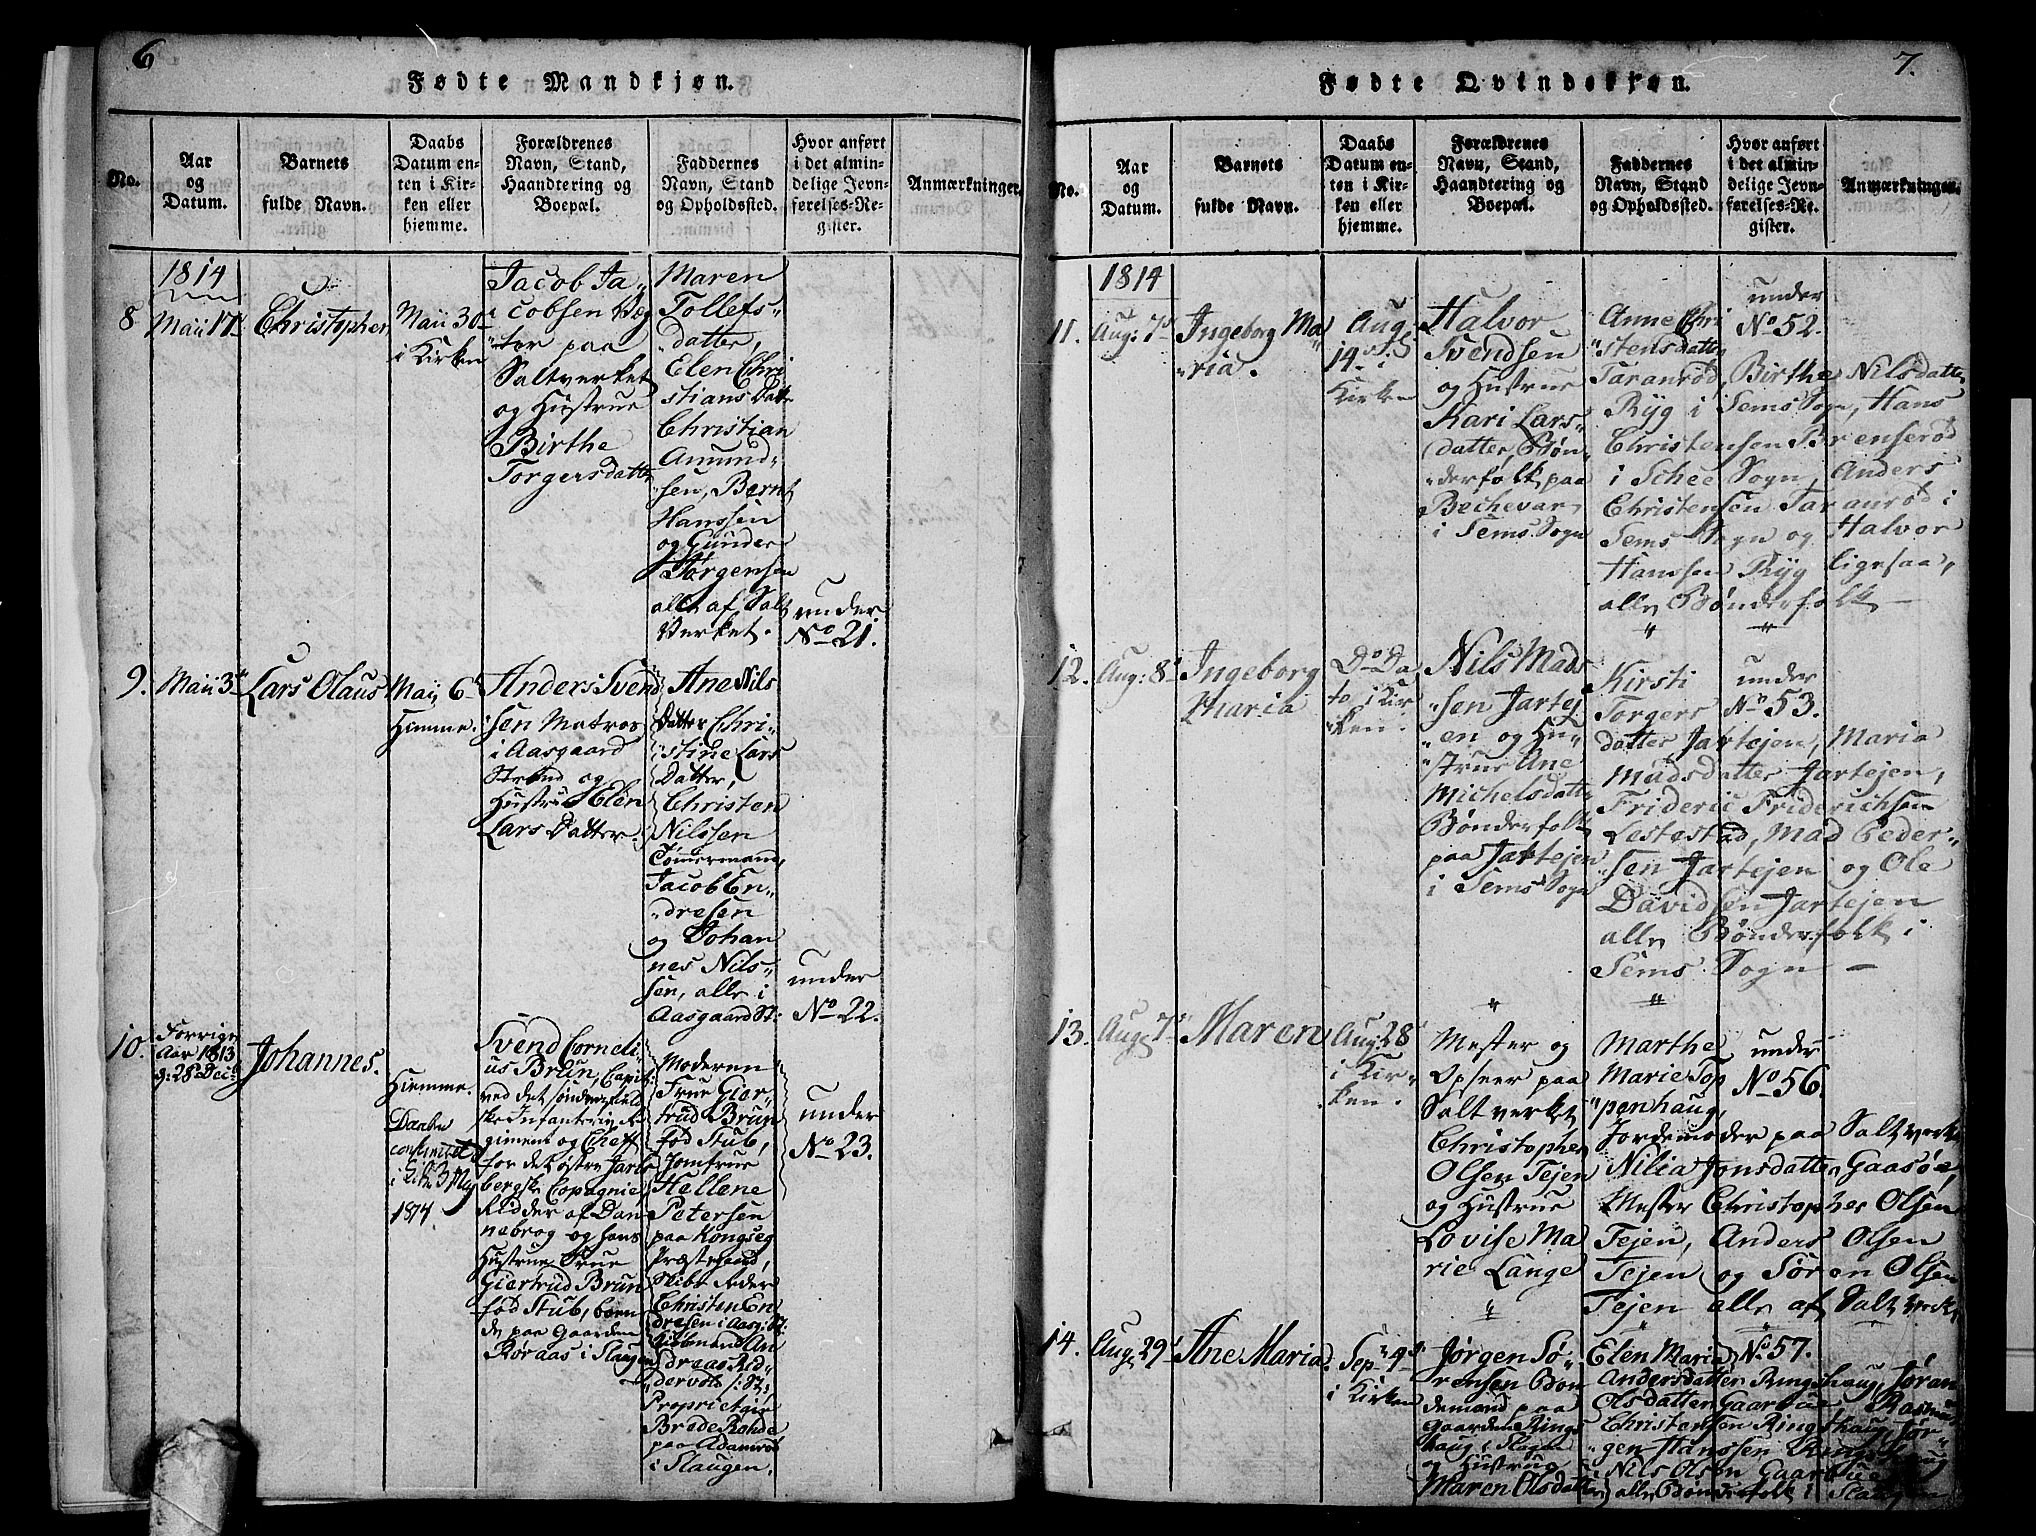 6
Fødte Mandkjøn.
No.
Aar
og
Datum.
Barnets
fulde Navn.
Daabs
Datum en-
ten i Kir-
ken eller
hjemme.
Forældrenes
Navn, Stand,
Haandtering og
Boepæl.
Faddernes
Navn, Stand
og Opholdssted.
Hvor anført
i det almin-
delige Jevn-
førelses-Re-
gister.
Anmærkninger.
1814
8
Maii 17
Christopher
Maii 30
i Kirken
Jacob Ja-
cobsen Væg-
ter paa
Saltverket
og Hustrue
Birthe
Torgersdatter
Maren
Tollefs-
datter,
Elen Chri
stians Datt
Christian
Amund-
sen, Bernt
Hanssen
og Gunder
Jørgensen
alle af Salt
Verket.
under
No 21.
9.
Maii 3
Lars Olaus
Maii 6
Hiemme
Anders Svend
sen Matros
i Aasgaard
Strand og
Hustru Elen
Lars Datter
Ane Nils
Datter Chri-
stine Lars
Datter,
Christen
Nilssen
Tømmermand,
Jacob En-
dresen
og Johan
nes Nils-
sen, alle i
Aasgaard St:
under
No 22.
10.
Forrige
Aar 1813
d: 28 Dec:
Johannes.
Hiemme.
Daaben
confirmert
i 3 May
1814.
Svend Corneli
us Brun, Capit:
ved det søndenfield
ske Infanterie Re
giment og Cheff
for det østre Jarls
bergske Copagnie,
Ridder af Dan
nebrog og hans
Hustrue Frue
Giertrud Brun
fød Stub, boen
de paa Gaarden
Røraas i Slaugen
Moderen
Frue Gier-
trud Brun
fød Stub,
Jomfrue
Hellene
Petersen
paa Kongseg
Præstegaard,
Skibs Reder
Christen En
dresen i Aasg: St:
Kiøbmand An
dreas Rid-
dervold i: St:
Proprietair
Brede Rohde
paa Adamrød
i Slaugen.
under
No 23.
7.
Fødte Qvindekjøn.
No.
Aar
og
Datum.
Barnets
fulde Navn.
Daabs
Datum en-
ten i Kir-
ken eller
hjemme.
Forældrenes
Navn, Stand,
Haandtering og
Boepæl.
Faddernes
Navn, Stand
og Opholdssted.
Hvor anført
i det almin-
delige Jevn-
førelses-Re-
gister.
Anmærkninger.
1814
11.
Aug: 7
Ingeborg Ma
ria.
Aug
14 i
Kirken
Halvor
Svendsen
og Hustrue
Kari Lars-
datter, Bøn-
derfolk paa
Bechevar
i Sems Sogn
Anne Chri
stensdatter
Taranrød, Birthe Nilsdatter
Ryg i Sems Sogn, Hans
Christensen Brenserød
i Schee Sogn, Anders
Christensen Taranrød i
Sems Sogn og Halvor
Hanssen Ryg ligesaa,
alle Bønderfolk —
under
No 52.
12.
Aug: 8
Ingeborg
Maria
Do Da
to, i Kir
ken.
Nils Mads
sen Jartej
en og Hu
strue Ane
Michelsdatter
Bønderfolk
paa Jartejen
i Sems Sogn
Kirsti
Torgers
datter Jartejen, Maria
Madsdatter Jartejen,
Frideric Friderichsen
Lestestad, Mad Peder-
sen Jartejen og Ole
Davidsen Jartejen
alle Bønderfolk i
Sems Sogn —
under
No 53.
13.
Aug 7
Maren
Aug: 28
i Kir-
ken.
Mester og
Opseer paa
Saltverket
Christopher
Olsen Tejen
og Hustrue
Lovise Ma
rie Lange
Marthe
Marie Top
penhaug,
Jordemoder paa Saltverket
Nilia Jonsdatter Gaasøe,
Mester Christopher Olsen
Tejen, Anders Olsen
Tejen og Søren Olsen
Tejen alle af Saltverket
under
No 56.
14.
Aug 29
Ane Maria
Sep: 4
i Kirken
Jørgen Sø-
rensen Bon
demand paa
Gaarden Rings
haug i Slagen
og Hustrue
Maren Olsdatter
Elen Maria
Andersdatter Ringshaug, Jøran
Olsdatter Gaarbue, Rasmus
Christensen Ringshaug, Jør-
gen Hanssen Ringshaug
Nils Olsen Gaarbue
alle Bønderfolk i Slaugen
No 57.